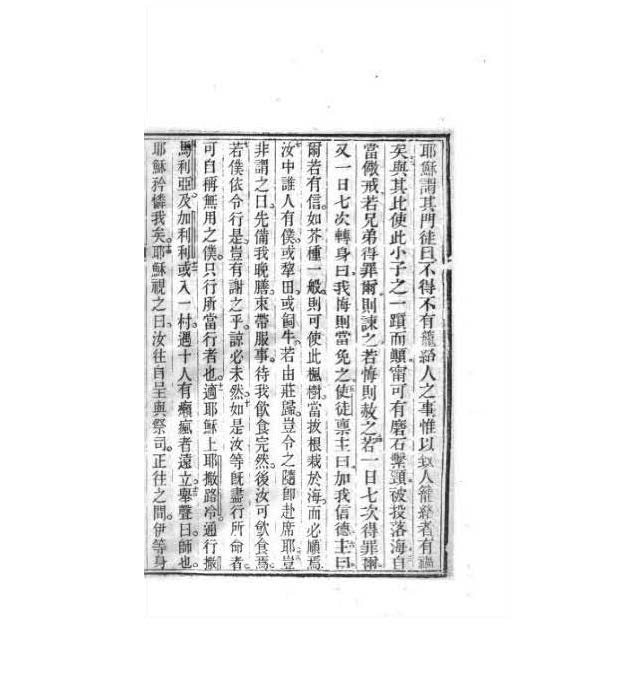 耶穌謂其門徒曰不得不有籠絡人之事惟以籠絡者有禍
矣與其比使此小子之一躓而蹎甯可有磨石繫頸被投落海自
當儆戒若兄弟得罪爾則諫之若悔則赦之若一日七次得罪爾
又一日七次轉身曰我悔則當免之使徒稟主曰加我信德主曰
爾若有信如芥種一般則可使此楓樹當拔根栽於海而必順焉
汝中誰人有僕或犂田或飼牛若由莊歸豈令之隨卽赴席耶豈
非謂之曰先備我晚膳束帶服事待我飲食完然後汝可飲食焉
若僕依令行是豈有謝之乎諒必未然如是汝等旣盡行所命者
可自稱無用之僕只行所當行者也適耶穌上耶撒路冷通行撒
馬利亞及加利利或入一村遇十人有癩瘋者遠立舉聲曰師也
耶穌矜憐我矣耶穌視之曰汝往自呈與祭司正往之間伊等身